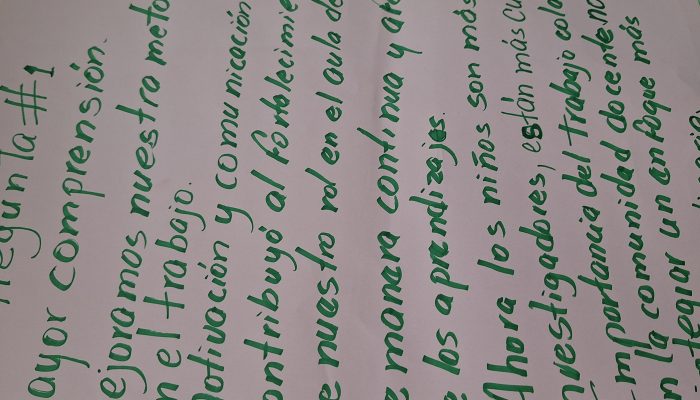 regunta #1
ayor comprensión.
ejoramos nuestro meto
n el trabajo.
otivación y comunicación
ontribuyó al fortalecimie
e nuestro rol en el aula de
e manera continua y
e los aprendizajes.
Ahora los niños son más
nvestigadores, están más cu
mportancia del trabajo cola
n la comunidad docente no
ntegrar un enfoque más